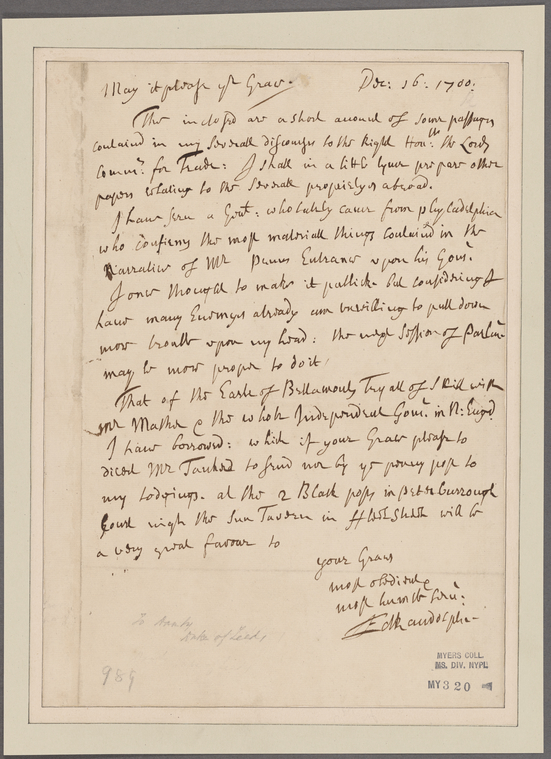 May it please yr Grace. Dec: 16: 1700:
The inclosed are a short account of some passages
contained in my severall discourses to the Right Hon:ble the Lords
Commrs for Trade: I shall in a little tyme prepare other
papers relating to the severall propriety's abroad.
I have seen a Gent: who lately came from phyladelphia
who confirms the most materiall things contained in the
Narrative of Mr Penns Entrance upon his Govt.
I once thought to make it publick but considering I
have many Enemyes already am unwilling to pull down
more trouble upon my head: the next Session of Parlim
may be more proper to doit
That of the Earle of Bellamonts Tryall of Skill with
mr Mather & the whole Independent Govt. in N: Engd.
I have borrowed: which if your Grace please to
direct Mr to send me by ye penny post to
my Lodgings. at the 2 Black posts in peterburrough
Court nigh the Sun Tavern in ffleetstreet will be
a very great favour to
your Graces
most obedient &
most humble Servt:
Ed Randolph
To
Duke of Leeds
989
MYERS COLL.
MS. DIV. NYPL
MY 3 20